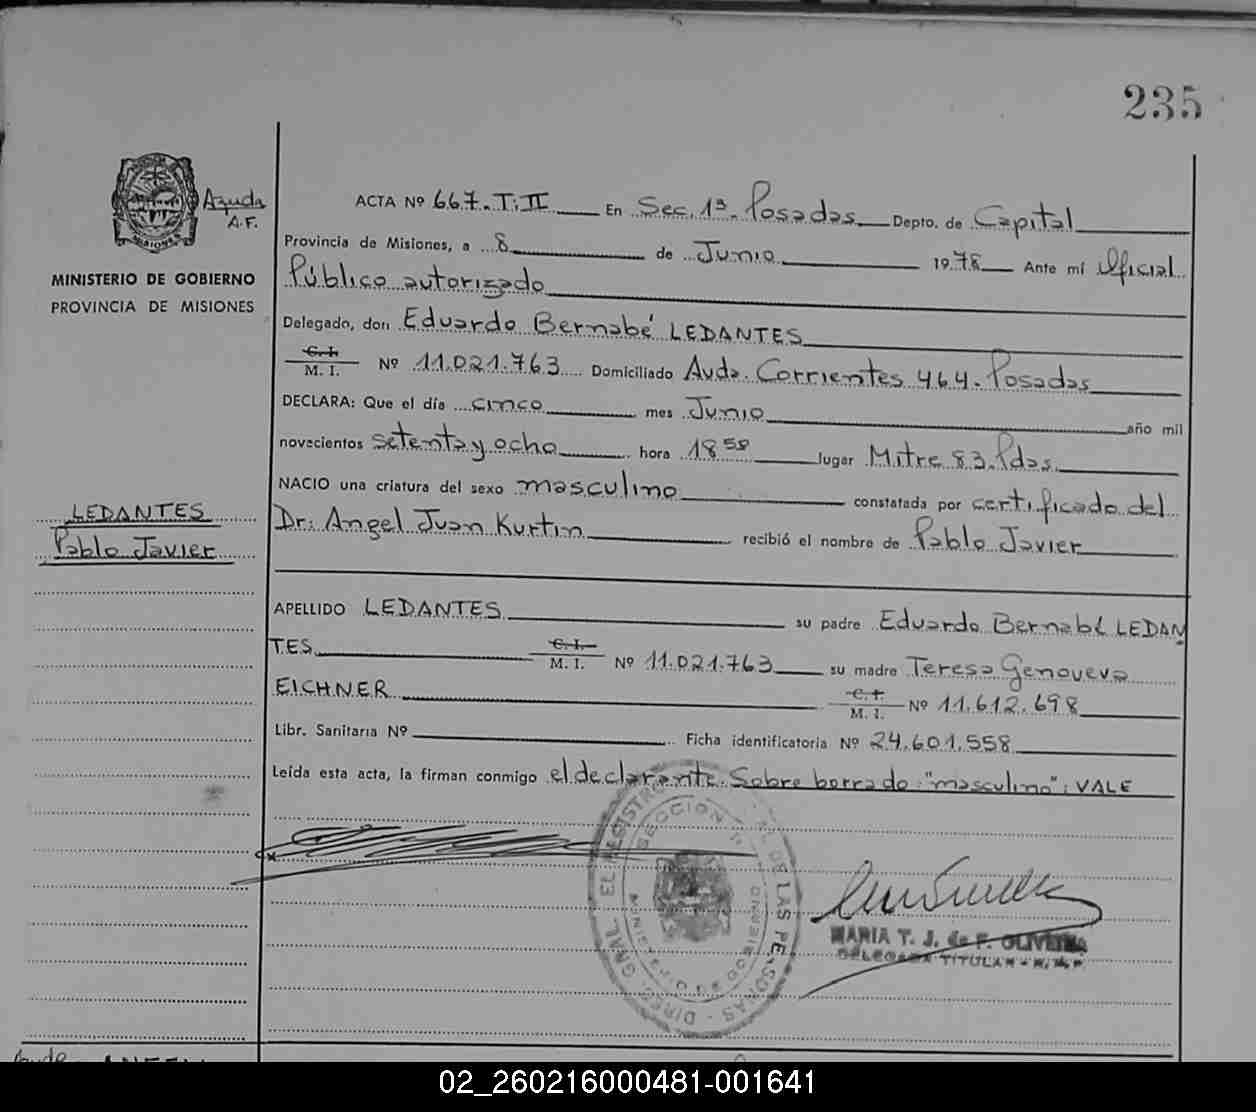 235
Ayuda
A.F.
MINISTERIO DE GOBIERNO
PROVINCIA DE MISIONES
ACTA Nº 667. T: II En Sec. 1ª. Posadas Depto. de Capital
Provincia de Misiones, a 8 de Junio 1978 Ante mí Oficial
Público autorizado
Delegado, don Eduardo Bernabé LEDANTES
C. I.
M. I. Nº 11.021.763 Domiciliado Avda. Corrientes 464. Posadas
DECLARA: Que el día cinco mes Junio año mil
novecientos setenta y ocho hora 18 58 lugar Mitre 83. Pdas.
NACIO una criatura del sexo masculino constatada por certificado del
Dr: Angel Juan Kurtin recibió el nombre de Pablo Javier
LEDANTES
Pablo Javier
APELLIDO LEDANTES su padre Eduardo Bernabé LEDAN
TES C. I.
M. I. Nº 11.021.763 su madre Teresa Genoveva
EICHNER C. I.
M. I. Nº 11.612.698
Libr. Sanitaria Nº Ficha identificatoria Nº 24.601.558
Leída esta acta, la firman conmigo el declarante. Sobre borrado: "masculino": VALE
SECCION
MINISTERIO DE GOBIERNO
DIREC. GRAL. EL REGISTRO DE LAS PERSONAS
MARIA T. J. de F. OLIVEIRA
DELEGADA TITULAR - R. N. P.
02_260216000481-001641